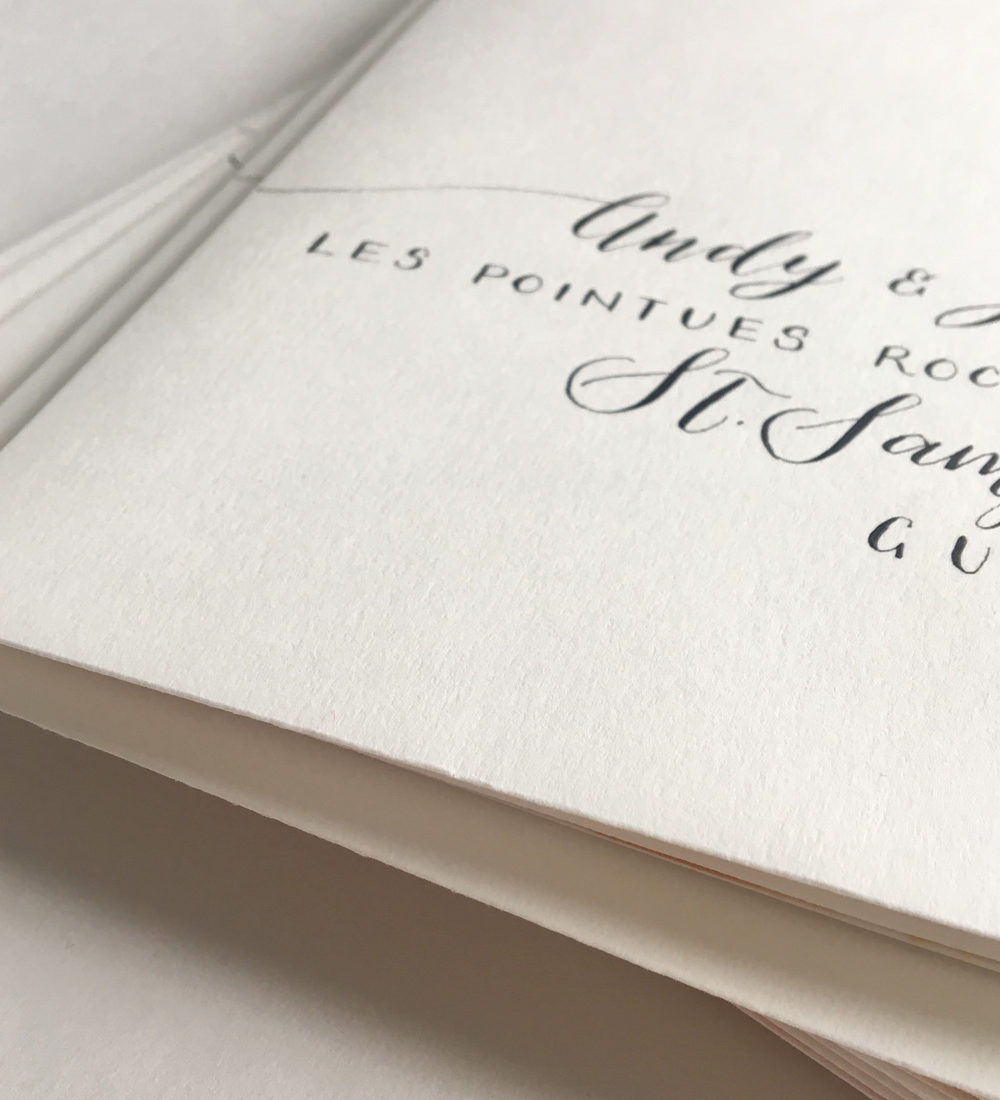 Andy &
LES POINTUES ROC
St. Sam
GU